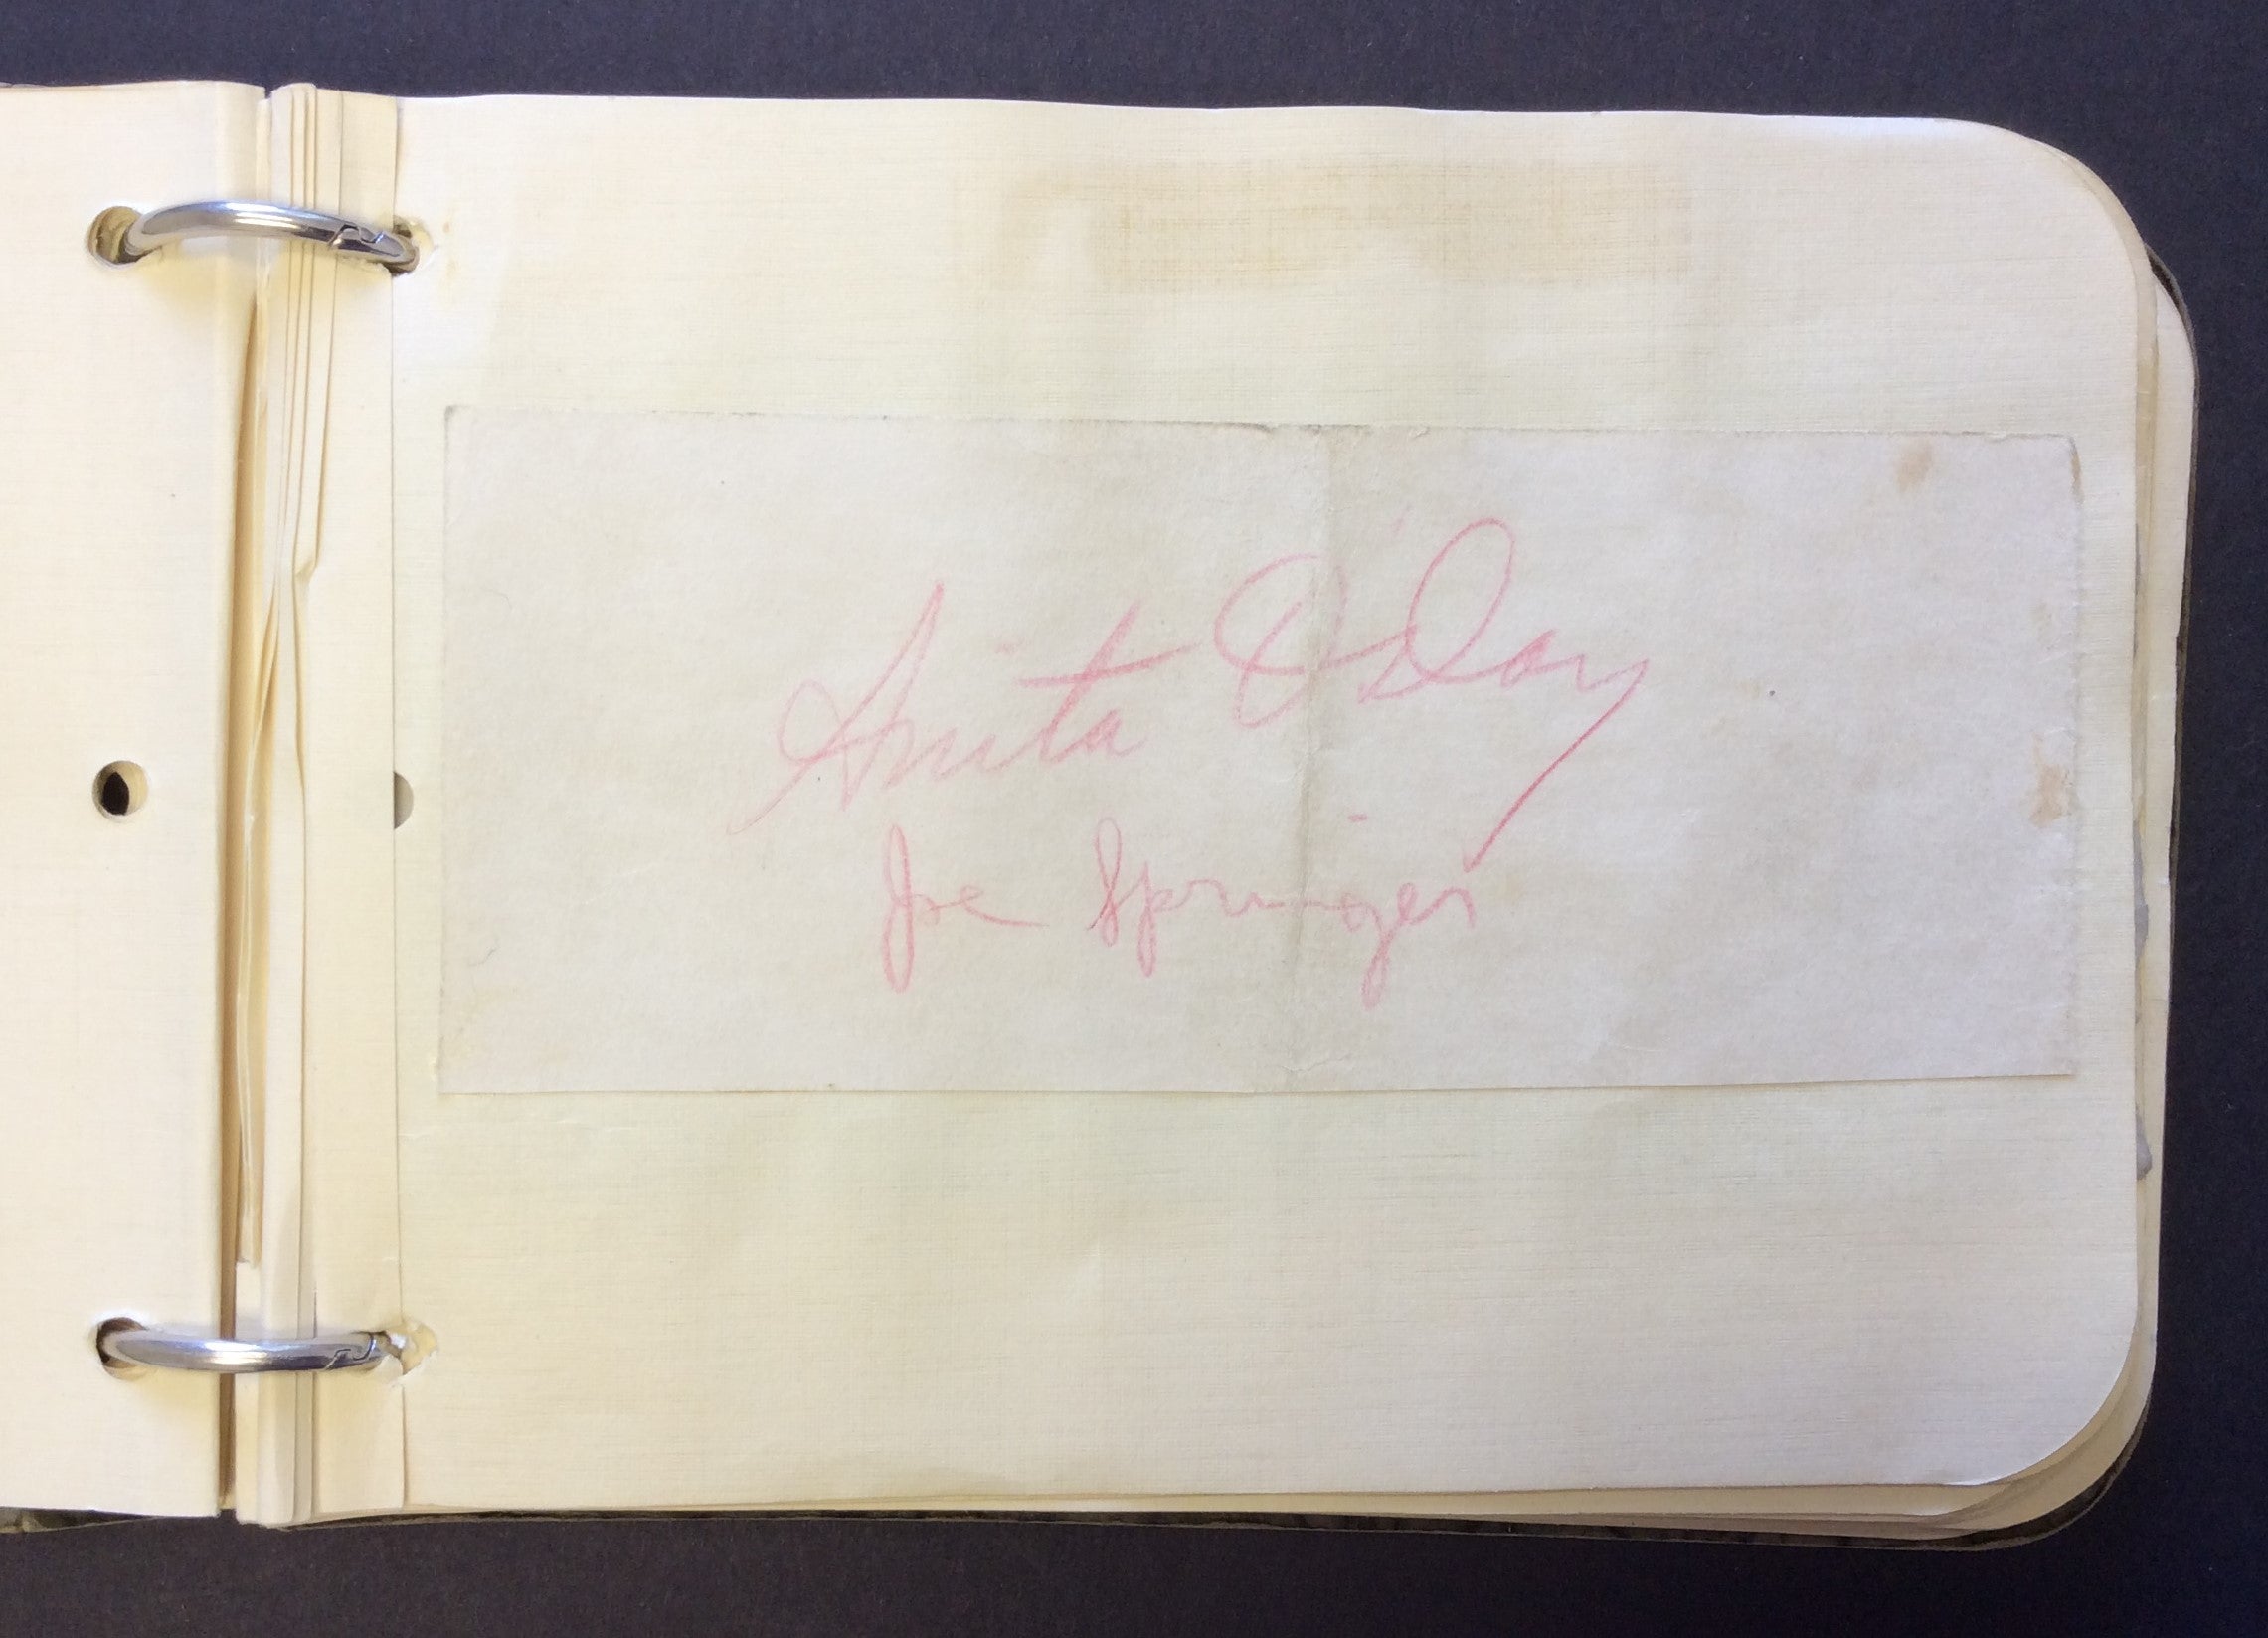 Anita O'Day
Joe Springer